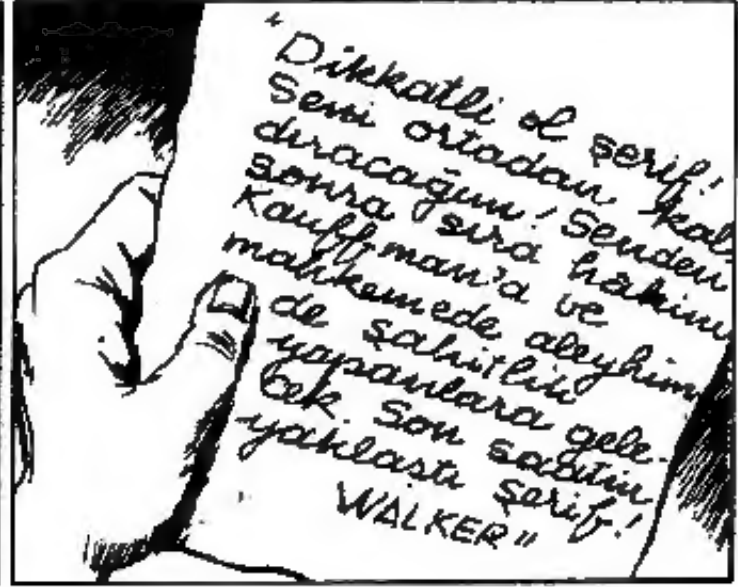 "Dikkatli ol şerif!
Seni ortadan kal
dıracağım! Senden
sonra sıra hakim
Kauffman'a ve
mahkemede aleyhim
de şahitlik
yapanlara gele-
cek. Son saatin
yaklaştı şerif!
WALKER"